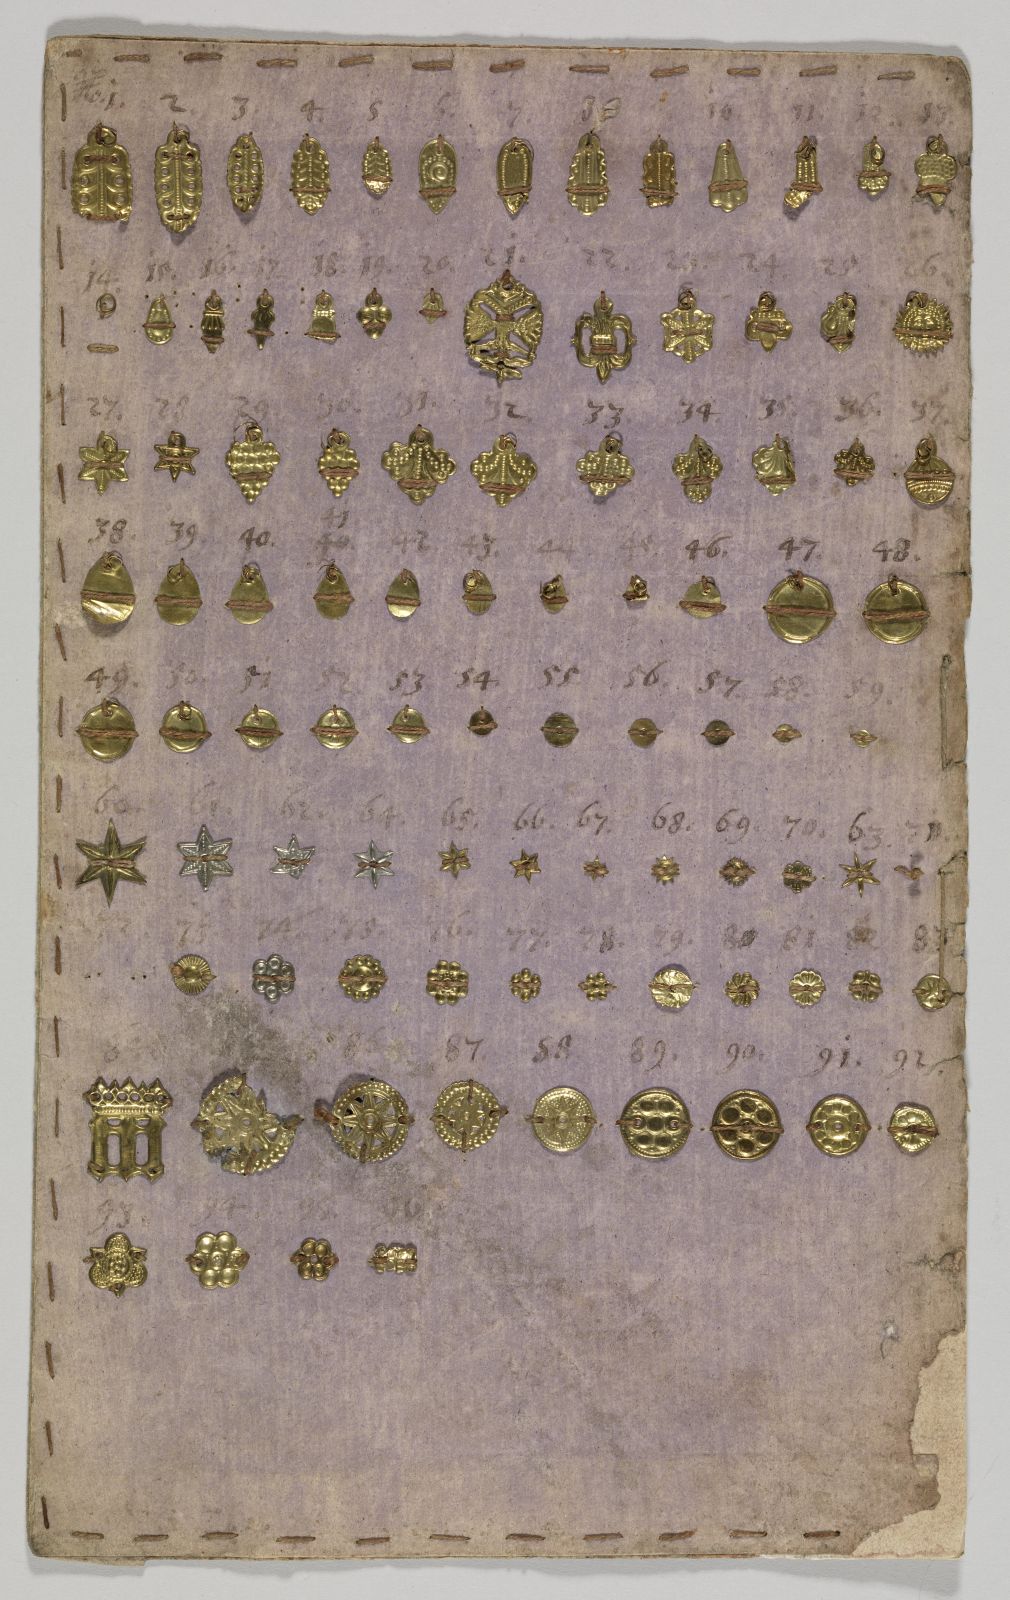 No. 1. 2. 3. 4. 5 6. 7. 10. 11. 12. 13.
14. 15. 16. 17. 18. 19. 20. 21. 22. 23. 24. 25. 26
27. 28 29. 30. 31. 32 33. 34. 35. 36. 37.
41
38. 39. 40. 40. 42 43. 44 45. 46. 47. 48.
49. 50. 51 52 53 54. 55 56. 57. 58. 59.
60. 61. 62. 64. 65. 66. 67. 68. 69. 70. 63. 71.
74. 75. 76. 77. 78. 79. 80 81 82 83
87. 88 89. 90. 91. 92.
93. 94. 95. 96.